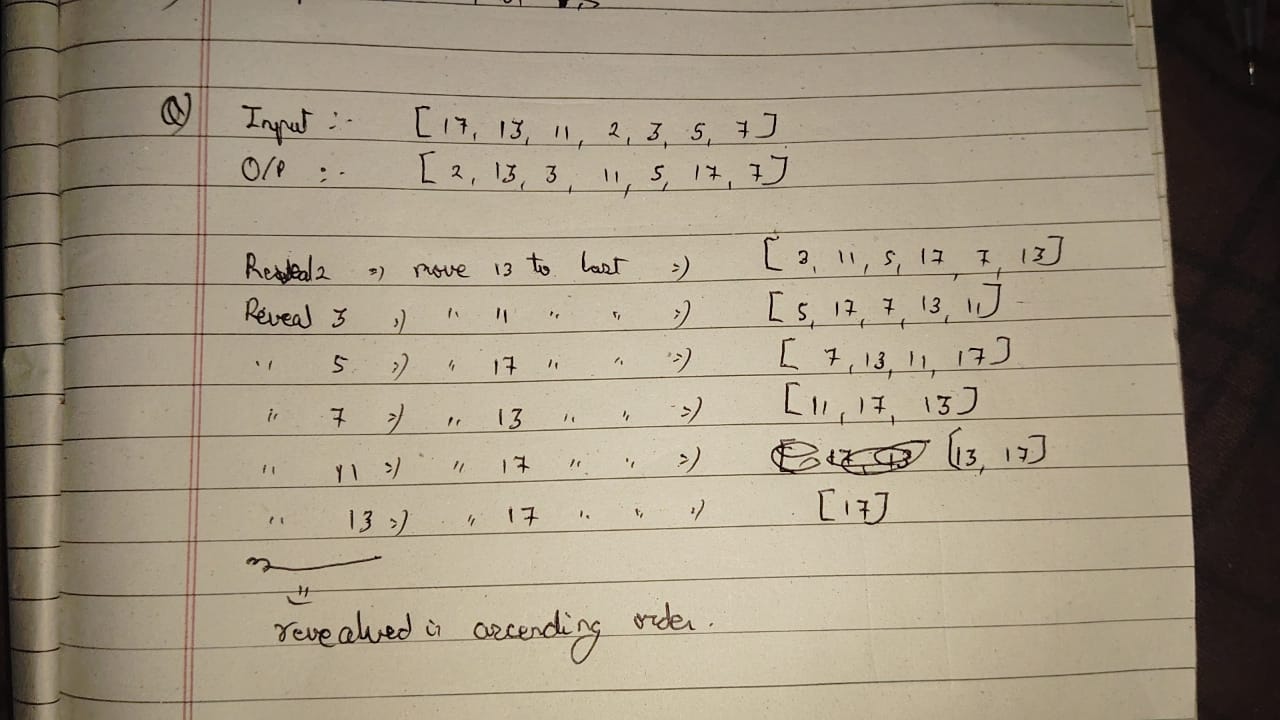 Q) Input :- [17, 13, 11, 2, 3, 5, 7]
O/P :- [2, 13, 3, 11, 5, 17, 7]
Reveal 2 => move 13 to last => [3, 11, 5, 17, 7, 13]
Reveal 3 => " 11 " " => [5, 17, 7, 13, 11]
" 5 => " 17 " " => [7, 13, 11, 17]
" 7 => " 13 " " => [11, 17, 13]
" 11 => " 17 " " => [13, 17]
" 13 => " 17 " " => [17]
revealved in ascending order.